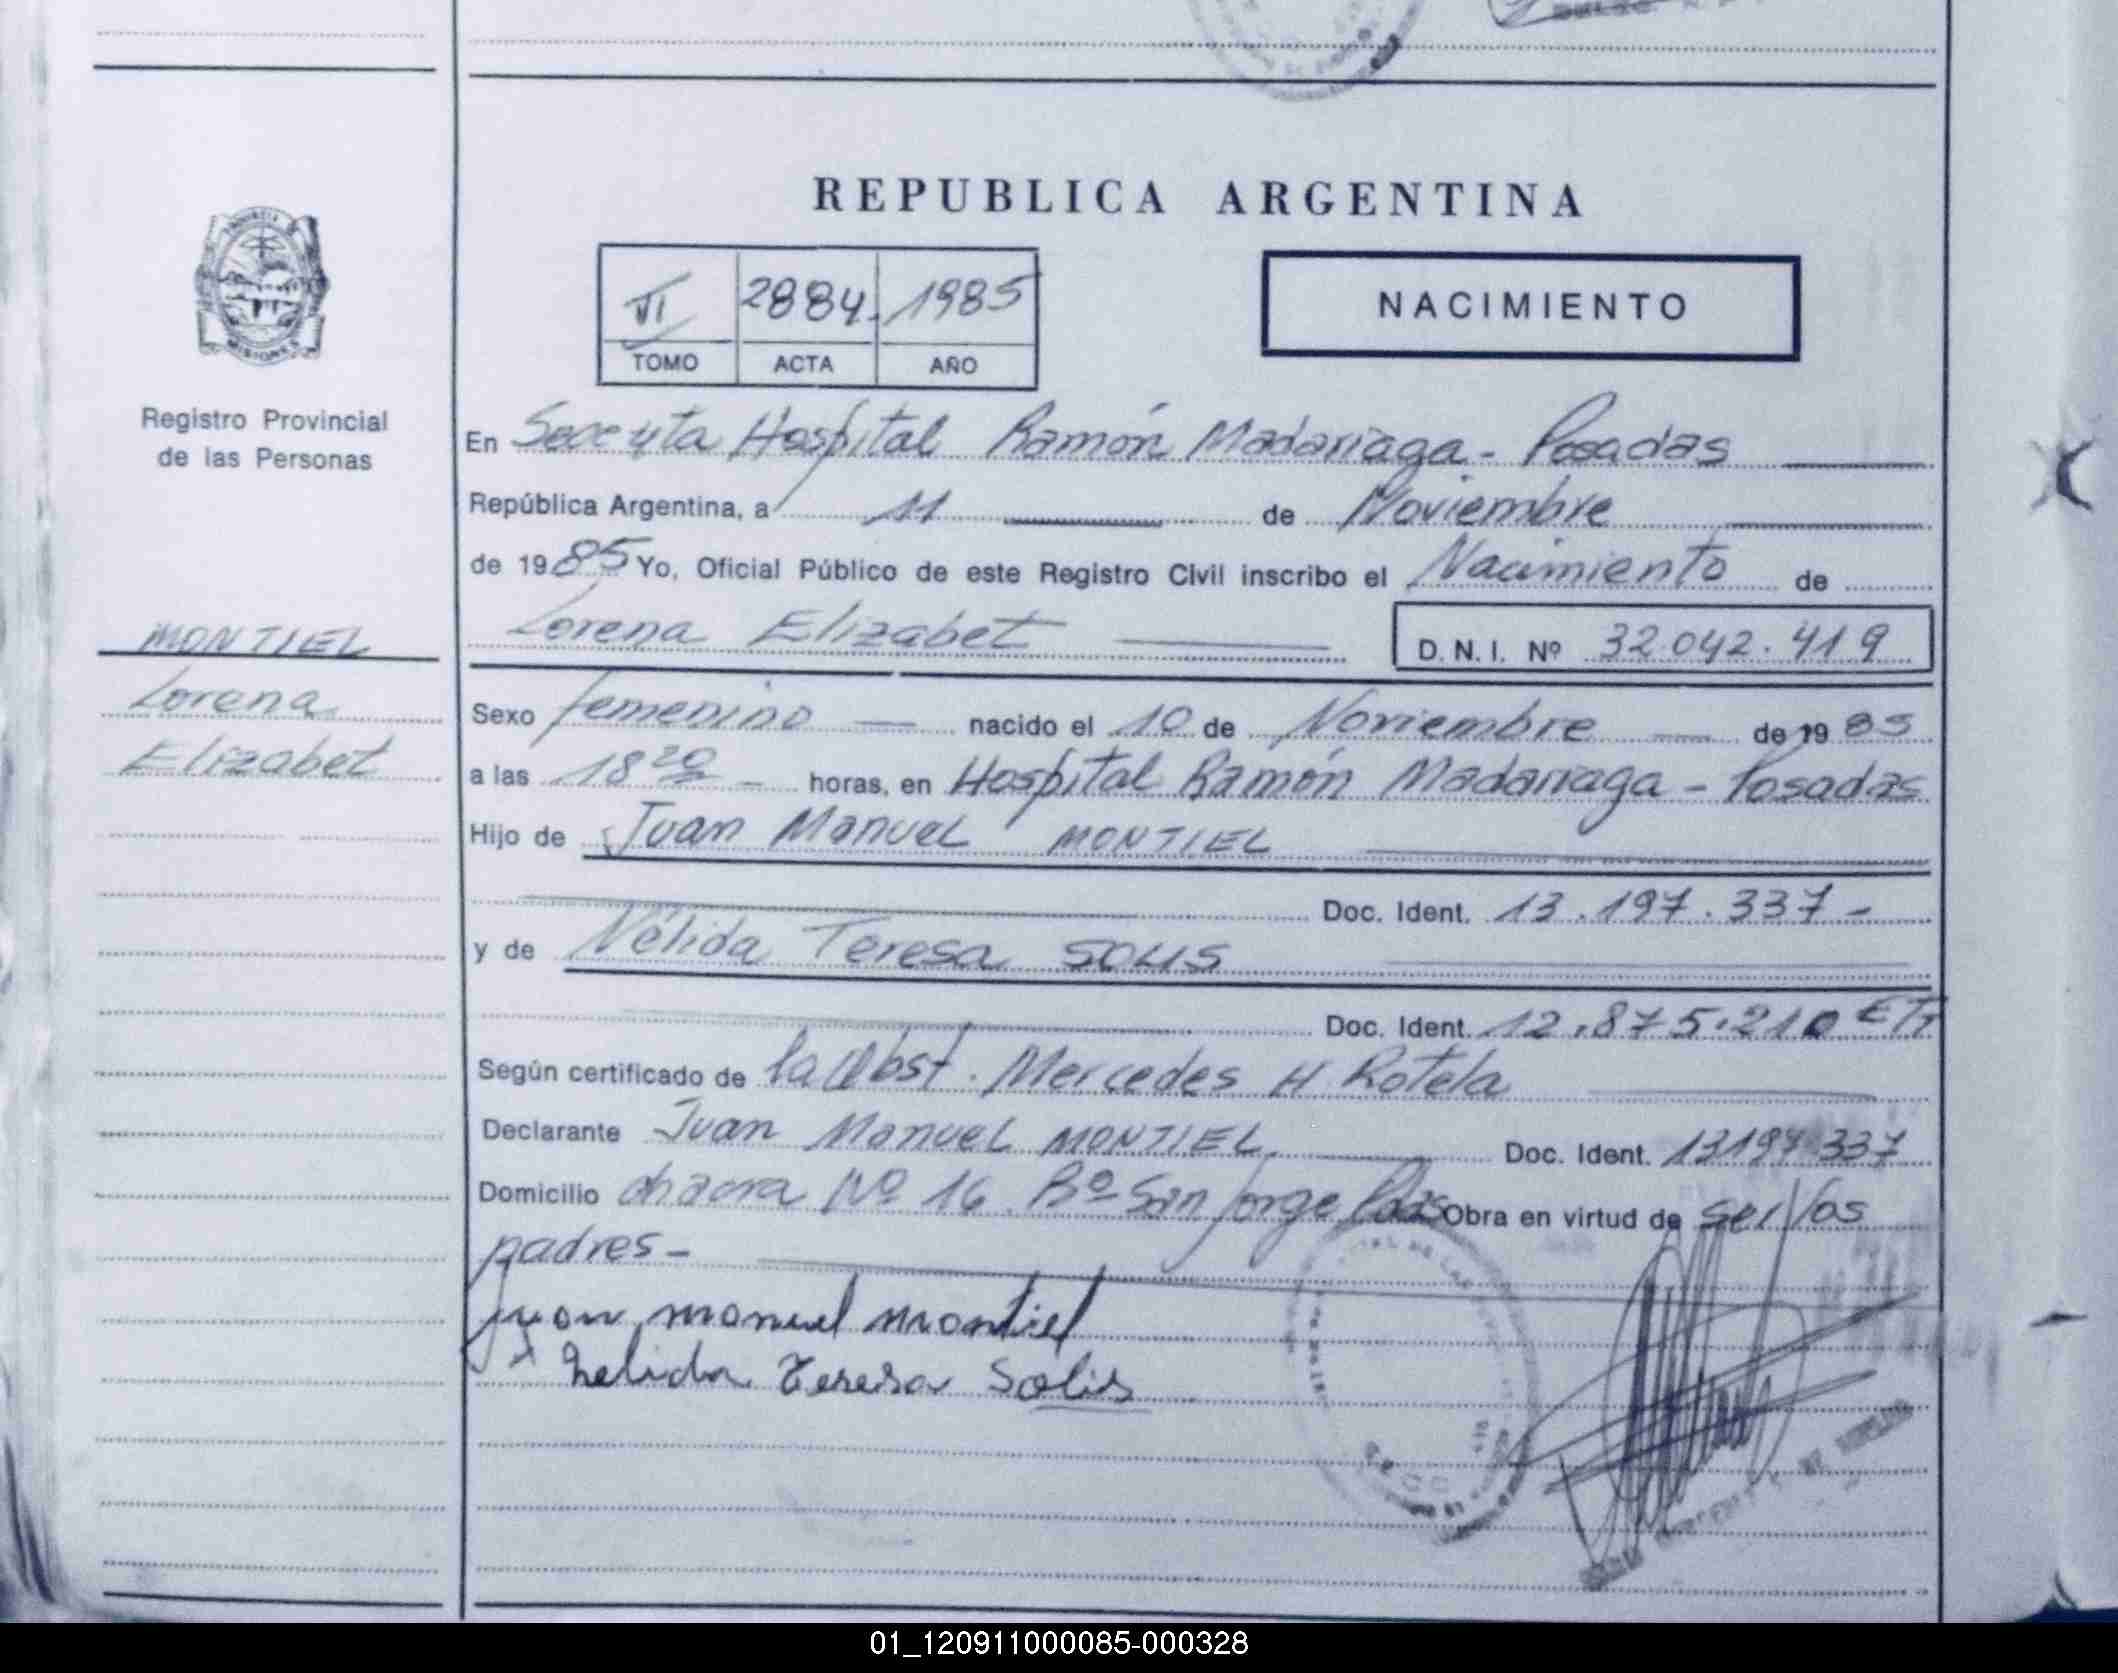 REPUBLICA ARGENTINA
VI 2884 1985
TOMO ACTA AÑO
NACIMIENTO
MISIONES
Registro Provincial
de las Personas
MONTIEL
Lorena
Elizabet
En Hospital Ramón Madariaga - Posadas
República Argentina, a 11 de Noviembre
de 1985 Yo, Oficial Público de este Registro Civil inscribo el Nacimiento de
Lorena Elizabet D.N.I. Nº 32.042.419
Sexo femenino nacido el 10 de Noviembre de 1985
a las 18 20 horas, en Hospital Ramón Madariaga - Posadas
Hijo de Juan Manuel MONTIEL
Doc. Ident. 13.197.337-
y de Nélida Teresa SOLIS
Doc. Ident. 12.875.210
Según certificado de la Obst. Mercedes H Rotela
Declarante Juan Manuel MONTIEL. Doc. Ident. 13197.337
Domicilio chacra Nº 16. Bº San Jorge Pdas Obra en virtud de ser los
padres-
Juan manuel montiel
nelida teresa Solis
01_120911000085-000328